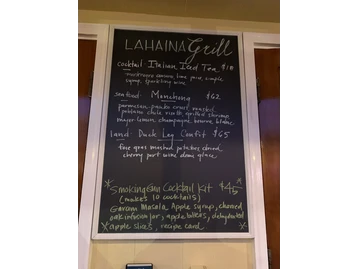 LAHAINA Grill
cocktail Italian Iced Tea $18
amaro, lime juice, simple
syrup, sparkling wine
seafood Monchong $62
parmesan panko crust, mashed
poblano chile, ricotta, grilled shrimp
meyer lemon, champagne beurre blanc
land Duck Leg Confit $65
foie gras mashed potatoes, dried
cherry port wine demi glace
Smoking Gun Cocktail Kit $45
(makes 10 cocktails)
Garam Masala Apple syrup, charred
oak infusion jar, apple bitters, dehydrated
apple slices, recipe card